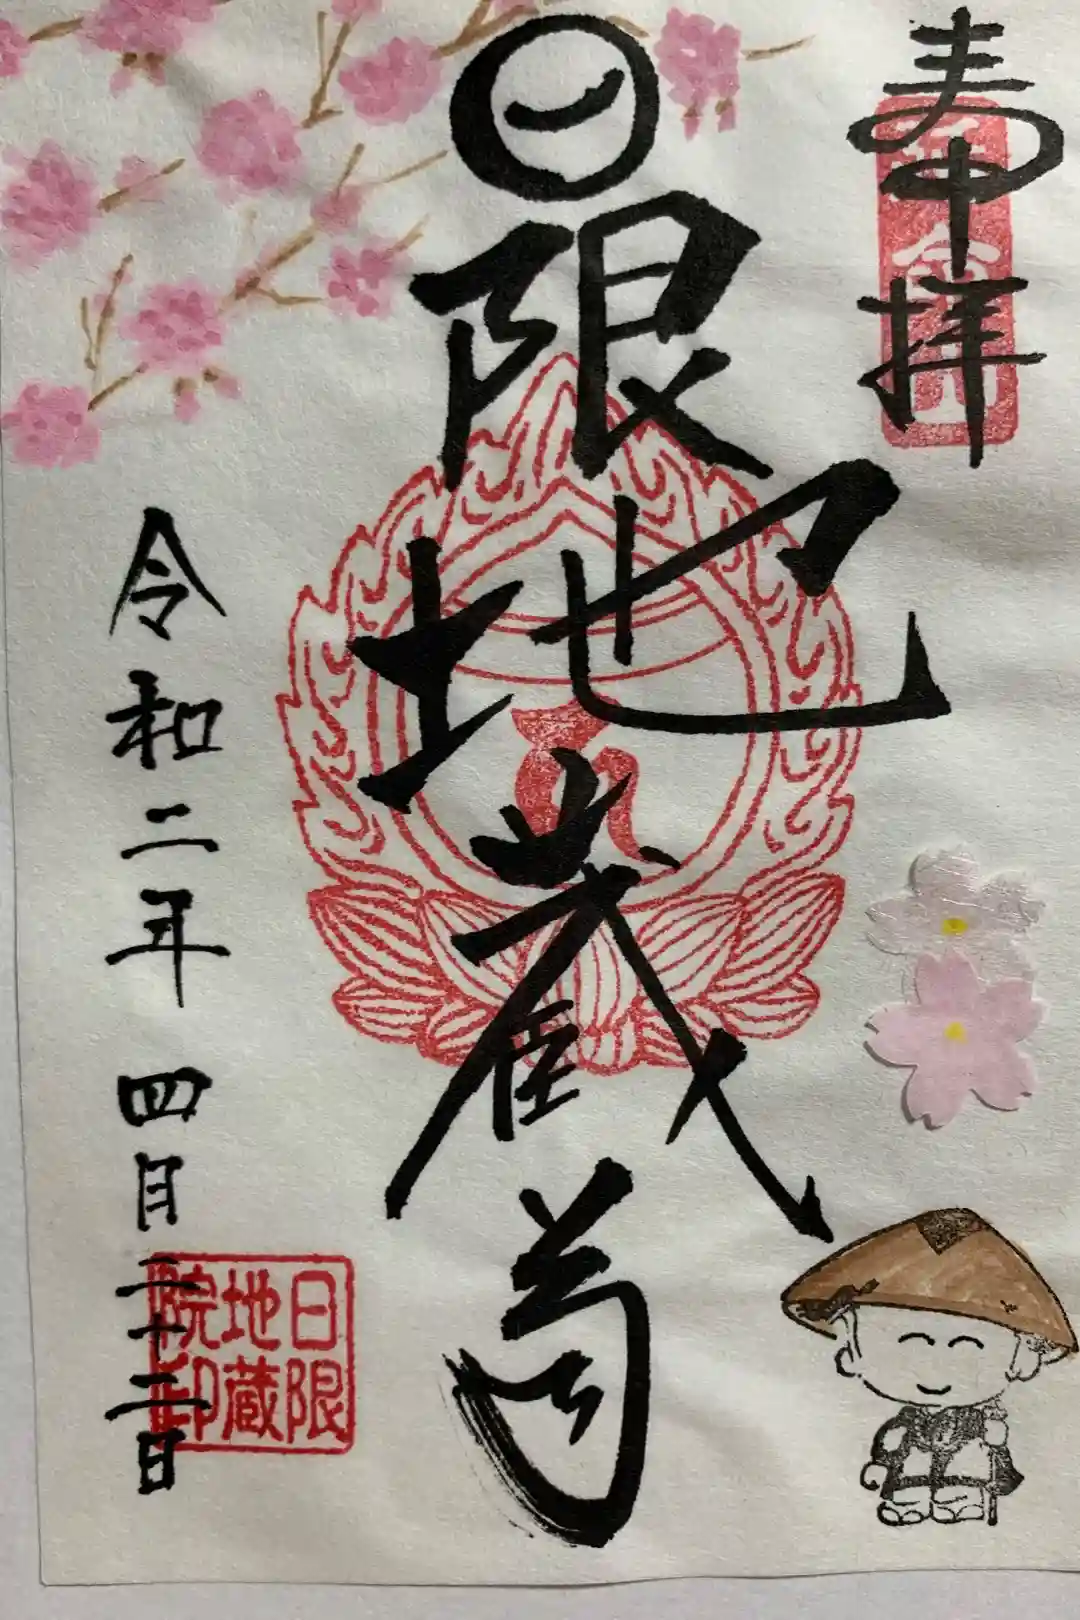 奉拝
日限地蔵尊
令和二年 四月二十二日
日限
地蔵
院印